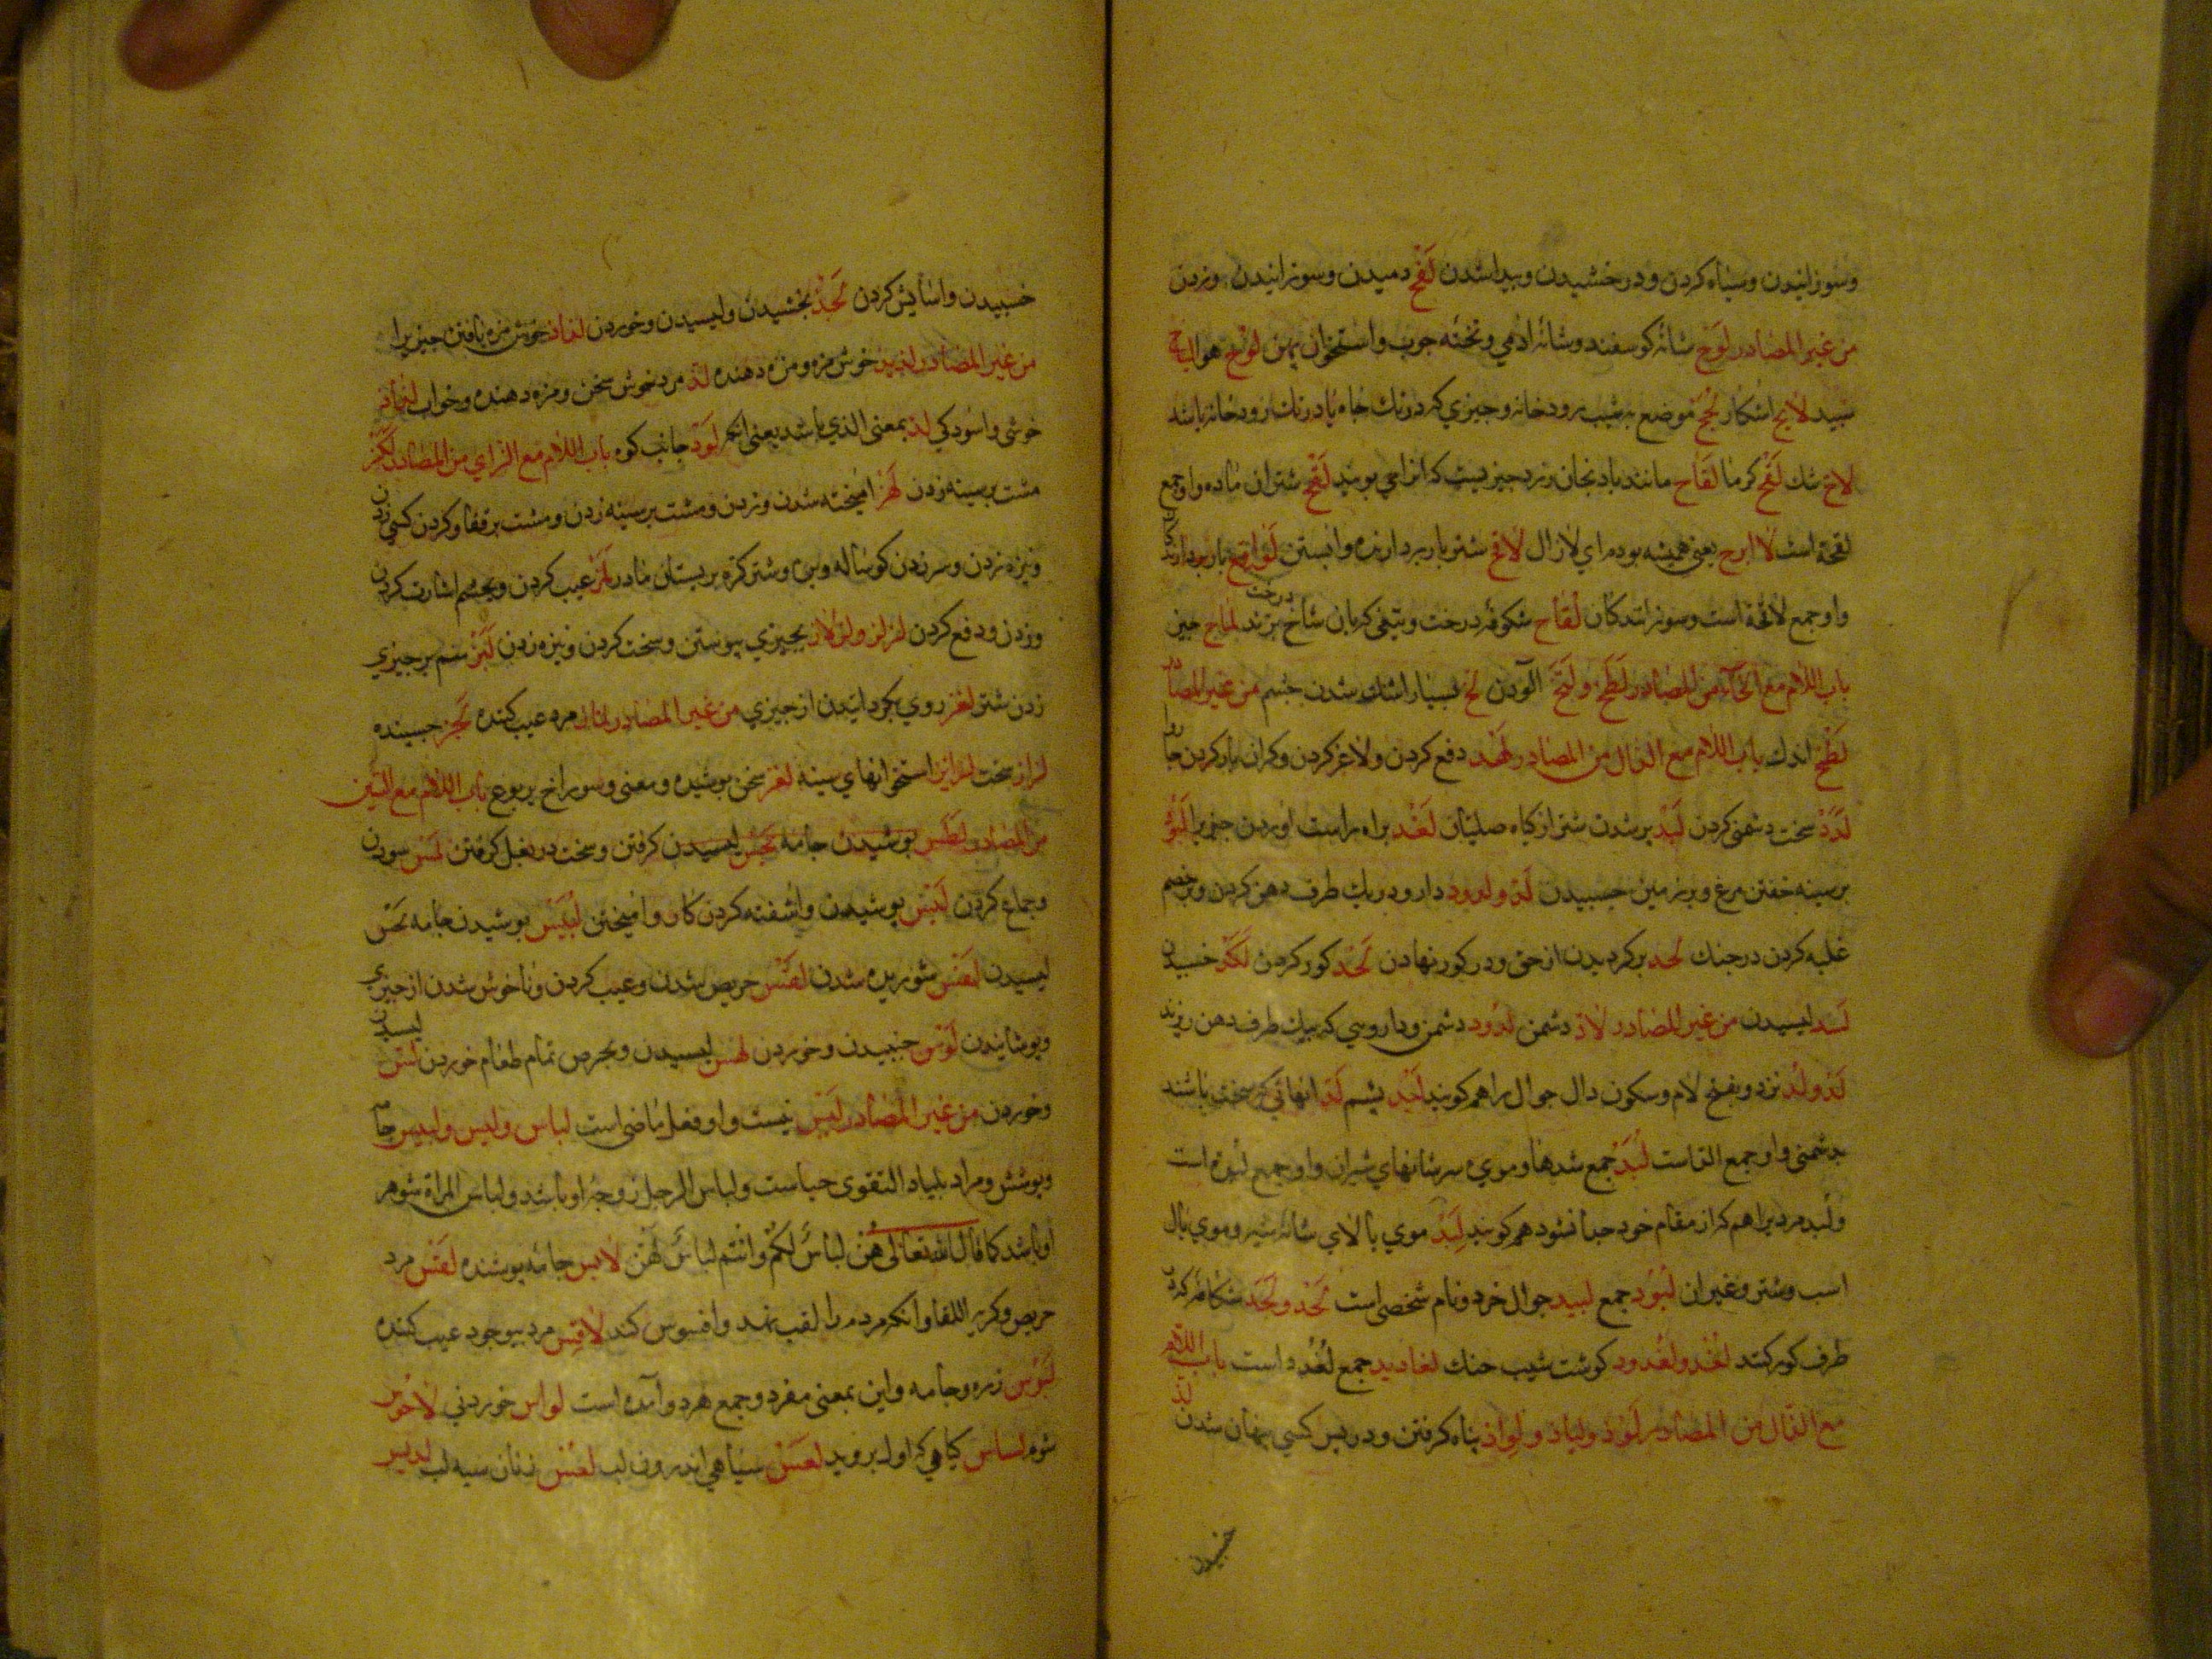 وسوزانیدن وسیاه کردن ودرخشیدن وپیدا شدن لَفْح دمیدن وسوزانیدن وزدن
من غیر المصادر لَوْح شانهٔ کوسفند وشانهٔ ادمي وتخته جوب واستخوان پهن لُوْح هوا
سپید لایح اشکار لُجْح موضع بشیب رودخانه وجیزي که درتك جاه یا درتك رودخانه باشد
لاح تنك لَفْح کرما لفاح مانند بادنجان زرد جیزیست که انرا مي بویند لِقْح شتران ماده واو جمع
لقحة است لا ابرح یعنی همیشه بودم اي لازال لاقح شتر بار بردارنده وابستن لَوَاقح بار بردارندکان
واو جمع لاقحة است وسوزانندکان لقاح شکوفهٔ درخت وتیغی که بان شاخ درخت برند لماح جین
باب اللام مع الخاء من المصادر لَطْخ ولَتْخ آلودن لخ بسیار اشك شدن جشم من غیر المصادر
لَطْخ اندك باب اللام مع الدال من المصادر لَهْد دفع کردن ولاغر کردن وکران بار کردن جاروا
لَدَدْ سخت دشمنی کردن لَبَد پر شدن شتر از کیاه صلیان لَغْد براه راست اوردن جیزیرا لُبُوْد
بر سینه خفتن مرغ وبر زمین جسبیدن لَدّ ولدود دارو در یك طرف دهن کردن وبر خصم
غلبه کردن در جنك لحد بر کردیدن از حق ودر کور نهادن لَحْد کور کردن لَکَدْ جسبیدن
لسد لیسیدن من غیر المصادر لادّ دشمن لدود دشمن وداروي که بیك طرف دهن ریزند
لَدُ ولَدُن نزد وبفتح لام وسکون دال جوال را هم کویند لِبْد پشم لُدّ انهائي که سخت باشند
بدشمنی واو جمع الدّ است لُبَدْ جمع شدها وموي سر شانهاي شیران واو جمع لبدة است
ولُبَد مردیرا هم که از مقام خود جدا نشود هم کویند لِبَدْ موي بالاي شانهٔ شیر وموي یال
اسب وشتر وغیر ان لُبُوْد جمع لبید جوال خرد ونام شخصی است لَحْد ولُحْد شکافی که در
طرف کور کنند لُغْد ولُغْدود کوشت شیب حنك لغادید جمع لُغْدود است باب اللام
مع الذال من المصادر لَوْذ ولیاذ ولِواذ پناه کرفتن ودر پس کسي پنهان شدن لذ
جسبیدن
خسبیدن واسایش کردن لَجْذ بخشیدن ولیسیدن وخوردن لذاذ خوش مزه یافتن جیزیرا
من غیر المصادر لذیذ خوش مزه ومزه دهنده لذّ مرد خوش سخن ومزه دهنده وخواب لذاذ
خوشی واسودکي لذ بمعنی الذي باشد یعنی انکه لَوْذ جانب کوه باب اللام مع الزاي من المصادر لَکْز
مشت بر سینه زدن لَهْز امیخته شدن وزدن ومشت بر سینه زدن ومشت بر قفا وکردن کسی زدن
ونیزه زدن وسر زدن کوساله وبره وشتر کره بر پستان مادر لَمْز عیب کردن وبجشم اشارت کردن
وزدن ودفع کردن لز لزز ولزاز بجیزي پیوستن وسخت کردن ونیزه زدن لَبْز سم بر جیزي
زدن شتر لغز روي بکردانیدن از جیزي من غیر المصادر لماز مرد عیب کننده لَحِز جسبنده
لزاز سخت لزایز استخوانهاي سینه لغز سخن پوشیده ومعنی وسوراخ یربوع باب اللام مع السین
من المصادر لَطْس پوشیدن جامه لَحْس لیسیدن کرفتن وسخت در بغل کرفتن لَمْس سودن
وجماع کردن لَبْس پوشیدن واشفته کردن کار وامیختن لُبْس پوشیدن جامه لَحْس
لیسیدن لَقَس شوریده شدن لَقْس حریص شدن وعیب کردن وناخوش شدن از جیزي
وپوشانیدن لَوْس جنبیدن وخوردن لهس لیسیدن وبحرص تمام طعام خوردن لَس لیسیدن
وخوردن من غیر المصادر لَیْسَ نیست واو فعل ماضی است لباس ولبس ولبوس جامه
وپوشش ومراد بلباد التقوی حیاست ولباس الرجل زوجهٔ او باشد ولباس المراة شوهر
او باشد کما قال الله تعالی هُنَّ لباسٌ لکُمْ وانتم لباسٌ لهُنَّ لابس جامه پوشنده لَقِس مرد
حریص وکریه اللقا وانکه مردم را لقب نهد وافسوس کند لاقِس مرد بیوجود عیب کننده
لَبُوْس زره وجامه واین بمعنی مفرد وجمع هردو آمده است لواس خوردني لاحوس
شوم لساس کیاهي که اول بروید لَعَس سیاهي اندرون لب لُعْس زنان سیه لب لدیس